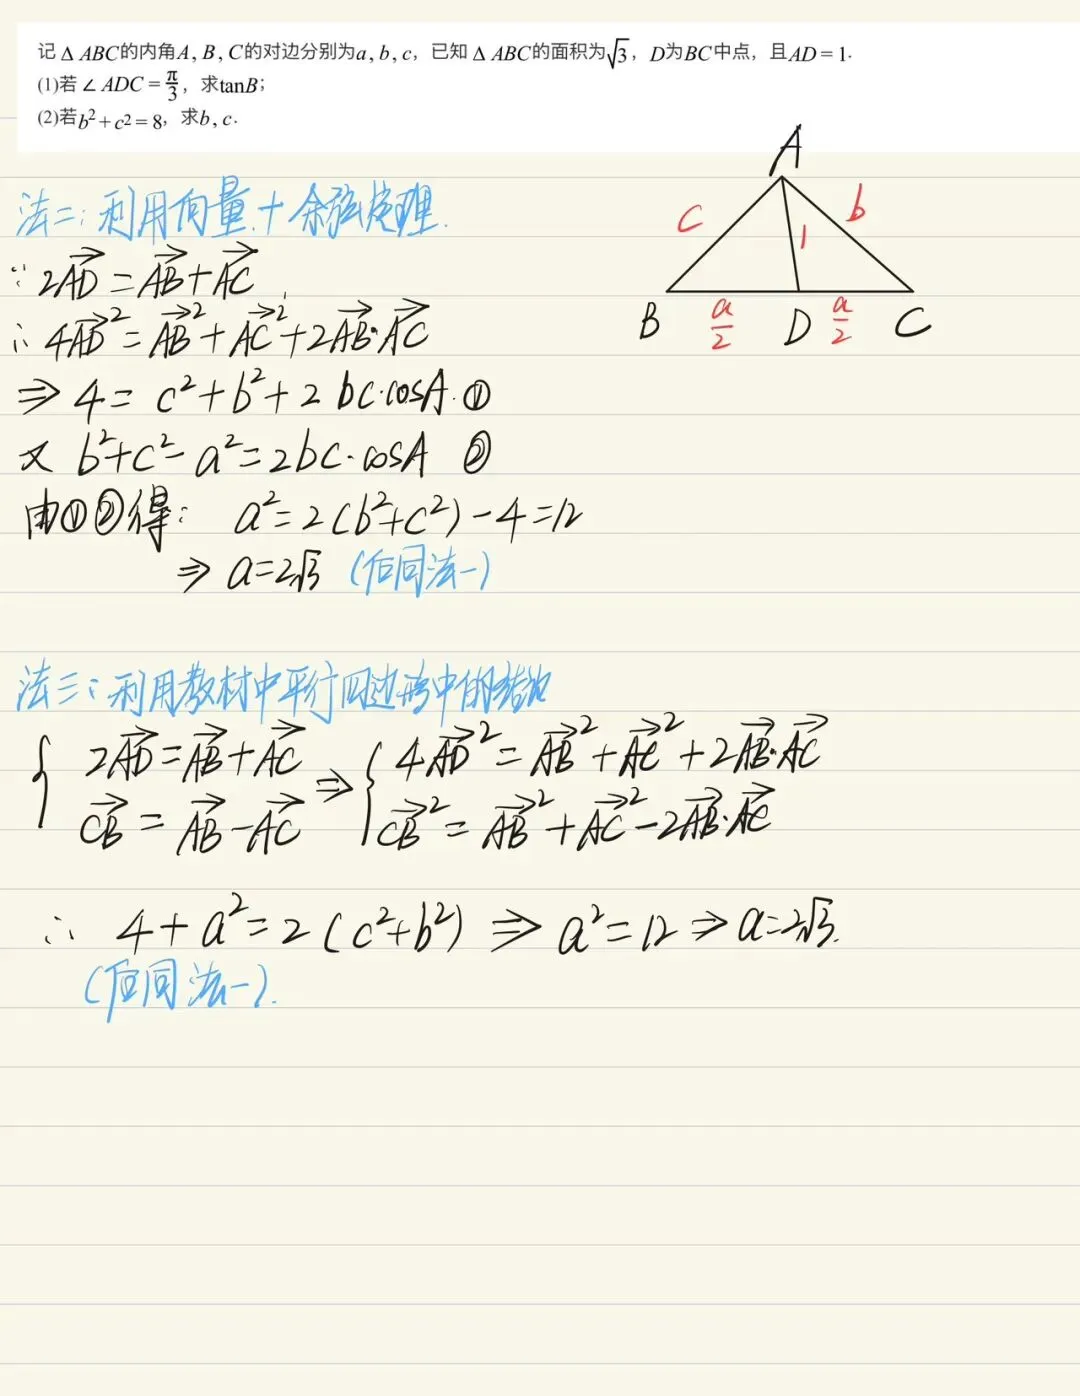 记△ABC的内角A, B, C的对边分别为a, b, c，已知△ABC的面积为√3，D为BC中点，且AD=1.
(1)若∠ADC=π/3，求tanB；
(2)若b²+c²=8，求b, c.
A
c
b
1
B
a/2
D
a/2
C
法二：利用向量+余弦定理.
∵ 2AD→=AB→+AC→
∴ 4AD→²=AB→²+AC→²+2AB→·AC→
⇒ 4=c²+b²+2bc·cosA. ①
又 b²+c²-a²=2bc·cosA ②
由①②得： a²=2(b²+c²)-4=12
⇒ a=2√3 (后同法一)
法三：利用教材中平行四边形中的结论
{ 2AD→=AB→+AC→ ⇒ { 4AD→²=AB→²+AC→²+2AB→·AC→
CB→=AB→-AC→ CB→²=AB→²+AC→²-2AB→·AC→
∴ 4+a²=2(c²+b²) ⇒ a²=12 ⇒ a=2√3.
(后同法一).